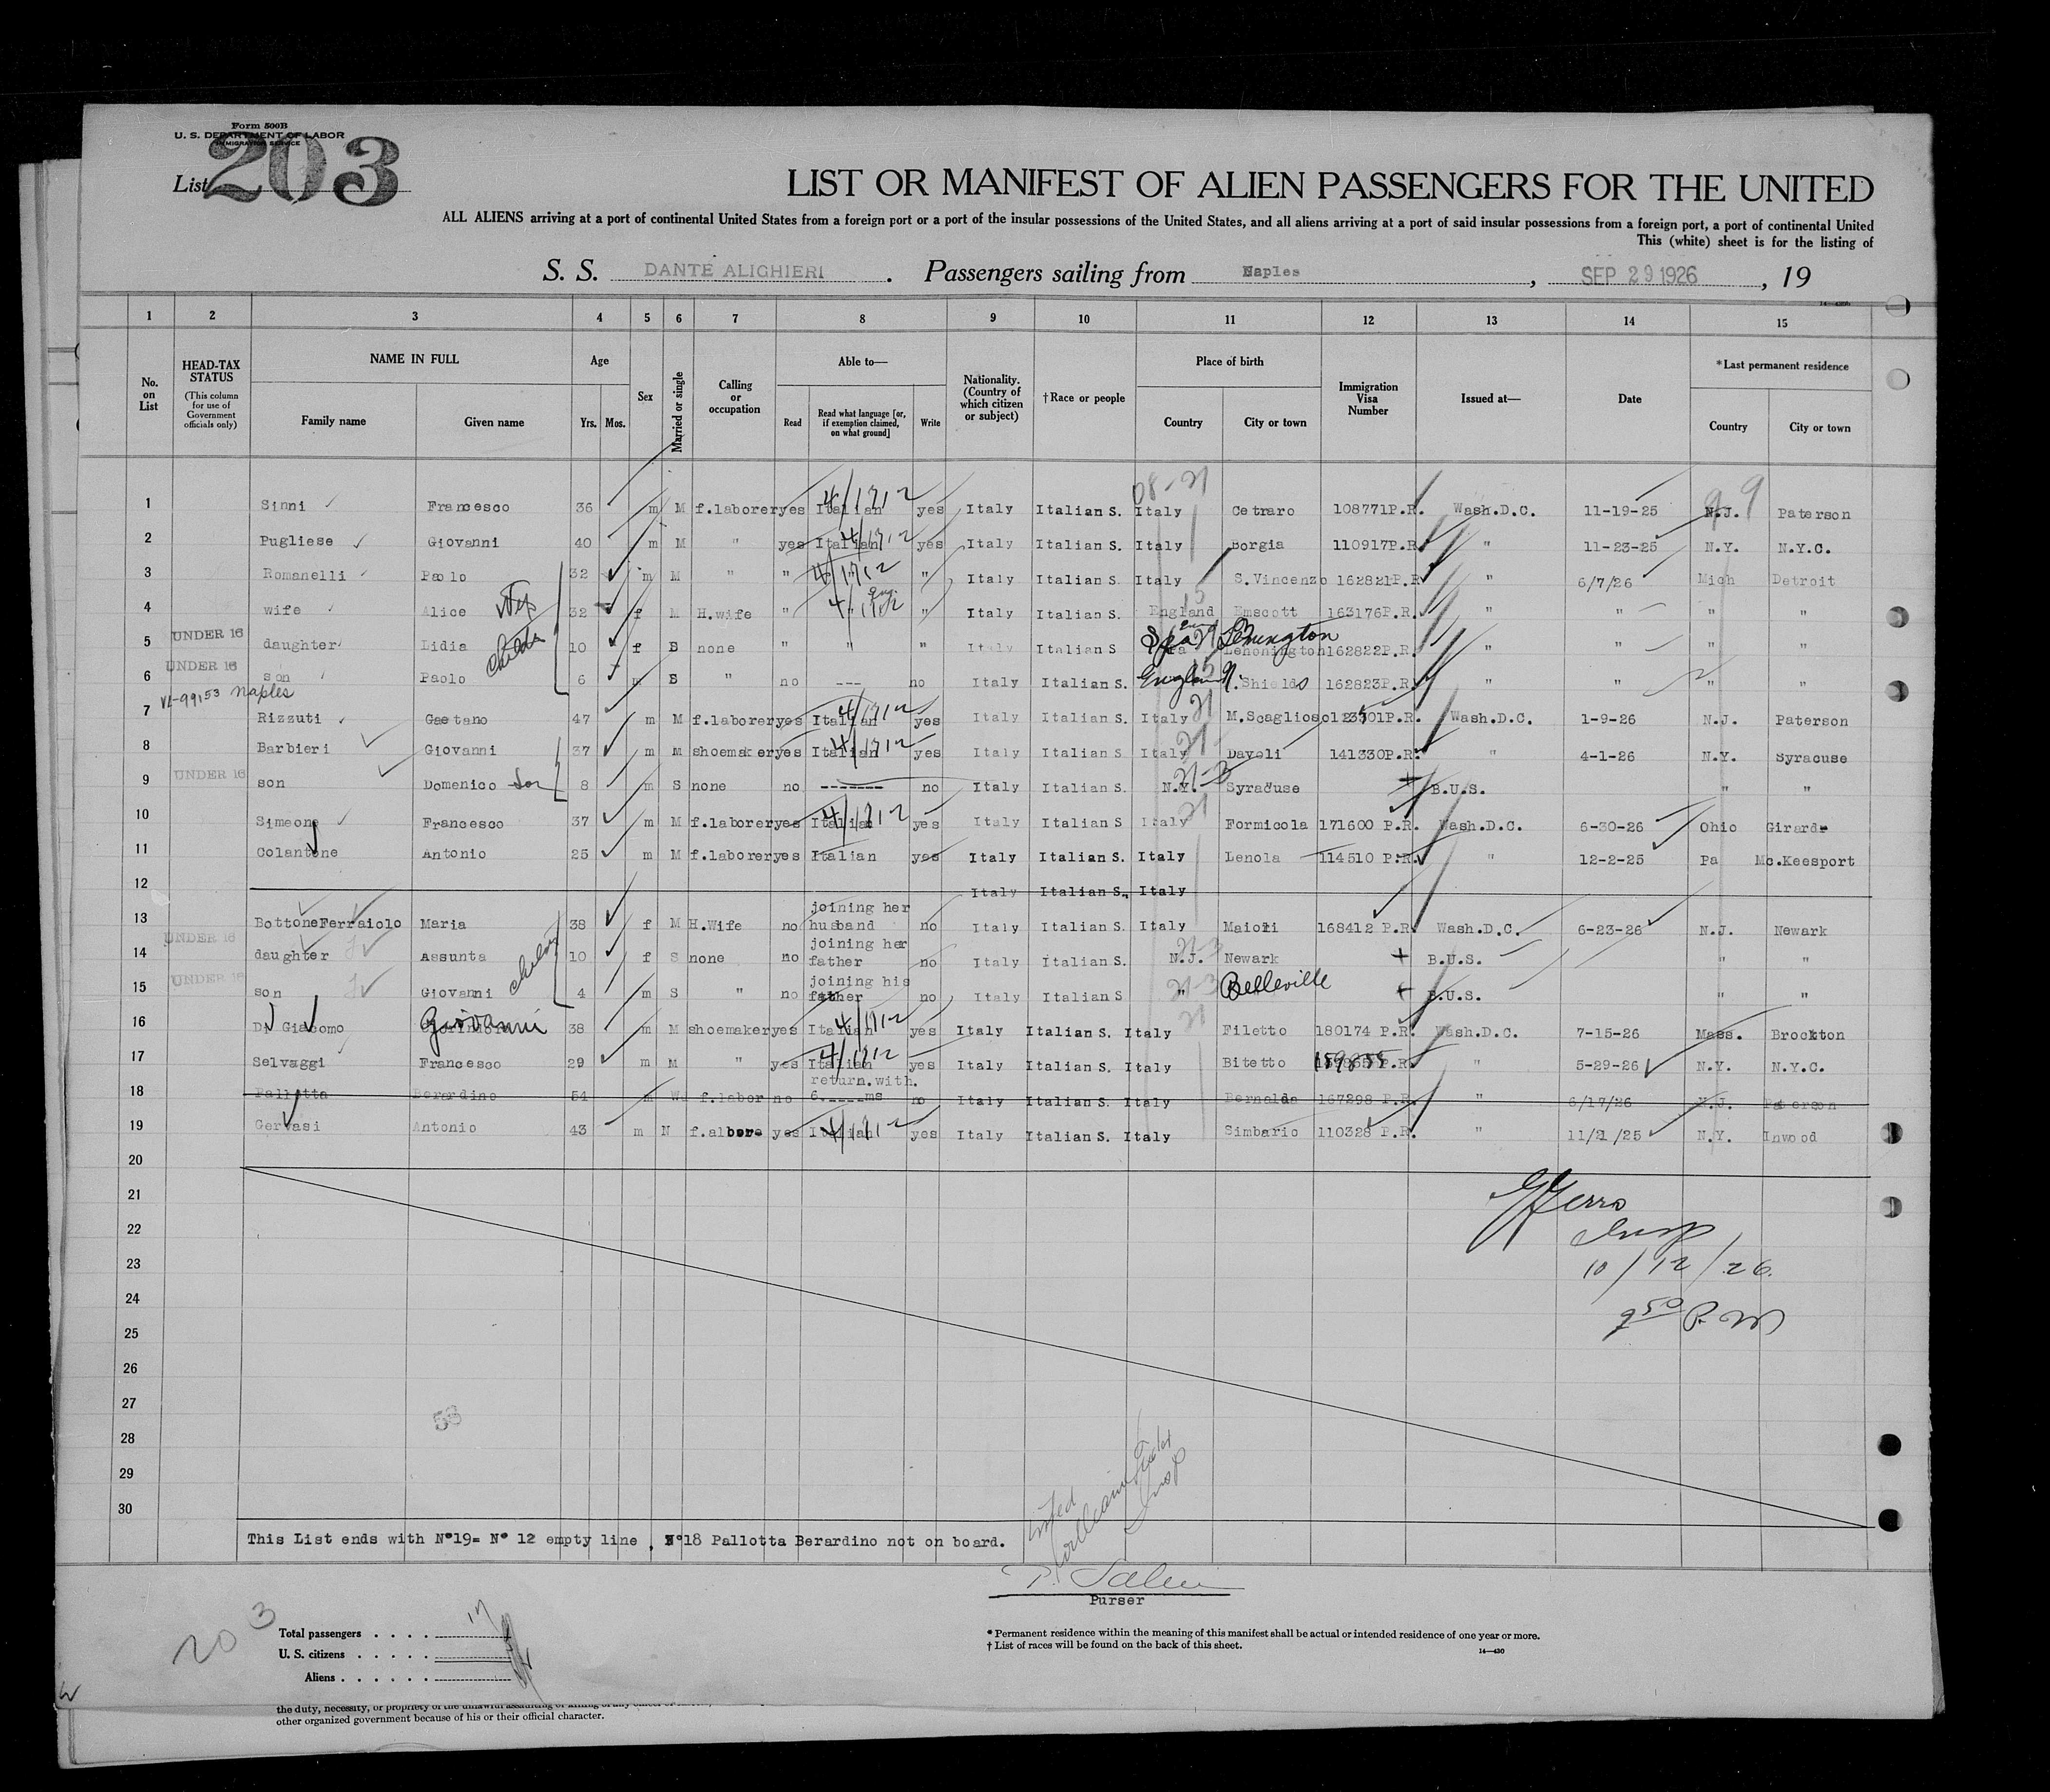 Form 500B
U. S. DEPARTMENT OF LABOR
IMMIGRATION SERVICE
List 203
LIST OR MANIFEST OF ALIEN PASSENGERS FOR THE UNITED
ALL ALIENS arriving at a port of continental United States from a foreign port or a port of the insular possessions of the United States, and all aliens arriving at a port of said insular possessions from a foreign port, a port of continental United
This (white) sheet is for the listing of
S. S. DANTE ALIGHIERI . Passengers sailing from Naples , SEP 29 1926 , 19
1 2 3 4 5 6 7 8 9 10 11 12 13 14 15
No. on List HEAD-TAX STATUS (This column for use of Government officials only) NAME IN FULL Family name Given name Age Yrs. Mos. Sex Married or single Calling or occupation Able to— Read Read what language [or, if exemption claimed, on what ground] Write Nationality. (Country of which citizen or subject) †Race or people Place of birth Country City or town Immigration Visa Number Issued at— Date *Last permanent residence Country City or town
08-21
1 Sinni Francesco 36 m M f.laborer yes Italian 4/1912 yes Italy Italian S. Italy Cetraro 108771P.R. Wash.D.C. 11-19-25 N.J. 99 Paterson
2 Pugliese Giovanni 40 m M " yes Italian 4/1912 yes Italy Italian S. Italy Borgia 110917P.R. " 11-23-25 N.Y. N.Y.C.
3 Romanelli Paolo 32 m M " " " 4/1912 " Italy Italian S. Italy S.Vincenzo 162821P.R. " 6/7/26 Mich Detroit
4 wife Alice Wife 32 f M H.wife " " 4/1912 Eng. " Italy Italian S. England 15 Emscott 163176P.R. " " " "
5 UNDER 16 daughter Lidia Child 10 f S none " " " Italy Italian S Spa Lemington Lenonington 162822P.R. " " " "
6 UNDER 16 son Paolo 6 m S " no --- no Italy Italian S. England 15 N.Shields 162823P.R. " " " "
VL-99153 Naples
7 Rizzuti Gaetano 47 m M f.laborer yes Italian 4/1912 yes Italy Italian S. Italy 21 M.Scaglioso 123501P.R. Wash.D.C. 1-9-26 N.J. Paterson
8 Barbieri Giovanni 37 m M shoemaker yes Italian 4/1912 yes Italy Italian S Italy 21 Davoli 141330P.R. " 4-1-26 N.Y. Syracuse
9 UNDER 16 son Domenico Son 8 m S none no ------- no Italy Italian S. N.Y. 21-3 Syracuse B.U.S. " "
10 Simeone Francesco 37 m M f.laborer yes Italian 4/1912 yes Italy Italian S Italy 21 Formicola 171600 P.R. Wash.D.C. 6-30-26 Ohio Girard
11 Colantone Antonio 25 m M f.laborer yes Italian yes Italy Italian S. Italy Lenola 114510 P.R. " 12-2-25 Pa Mc.Keesport
12 Italy Italian S. Italy
13 BottoneFerraiolo Maria 38 f M H.Wife no joining her husband no Italy Italian S. Italy Maiori 168412 P.R. Wash.D.C. 6-23-26 N.J. Newark
14 UNDER 16 daughter Assunta 10 f S none no joining her father no Italy Italian S. N.J. 21-3 Newark B.U.S. " "
15 UNDER 16 son Giovanni 4 m S " no joining his father no Italy Italian S " 21-3 Belleville B.U.S. " "
16 Di Giacomo Giovanni 38 m M shoemaker yes Italian 4/1912 yes Italy Italian S. Italy 21 Filetto 180174 P.R. Wash.D.C. 7-15-26 Mass. Brockton
17 Selvaggi Francesco 29 m M " yes Italian 4/1912 yes Italy Italian S. Italy Bitetto P.R. " 5-29-26 N.Y. N.Y.C.
18 Pallotta Berardino 54 m Wd f.labor no return.with. 6.----ms no Italy Italian S. Italy Bernalda 167298 P.R. " 6/17/26 N.J. Paterson
19 Gervasi Antonio 43 m N f.albore yes Italian 4/1912 yes Italy Italian S. Italy Simbario 110328 P.R. " 11/21/25 N.Y. Inwood
20
21
22
23
24
25
26
27
28
29
30
Insp
10/12/26.
9 50 P.M
56
Insp
This List ends with N°19= N° 12 empty line , N°18 Pallotta Berardino not on board.
Purser
203
Total passengers . . . . 17
U. S. citizens . . . . .
Aliens . . . . . .
* Permanent residence within the meaning of this manifest shall be actual or intended residence of one year or more.
† List of races will be found on the back of this sheet.
14—430
other organized government because of his or their official character.